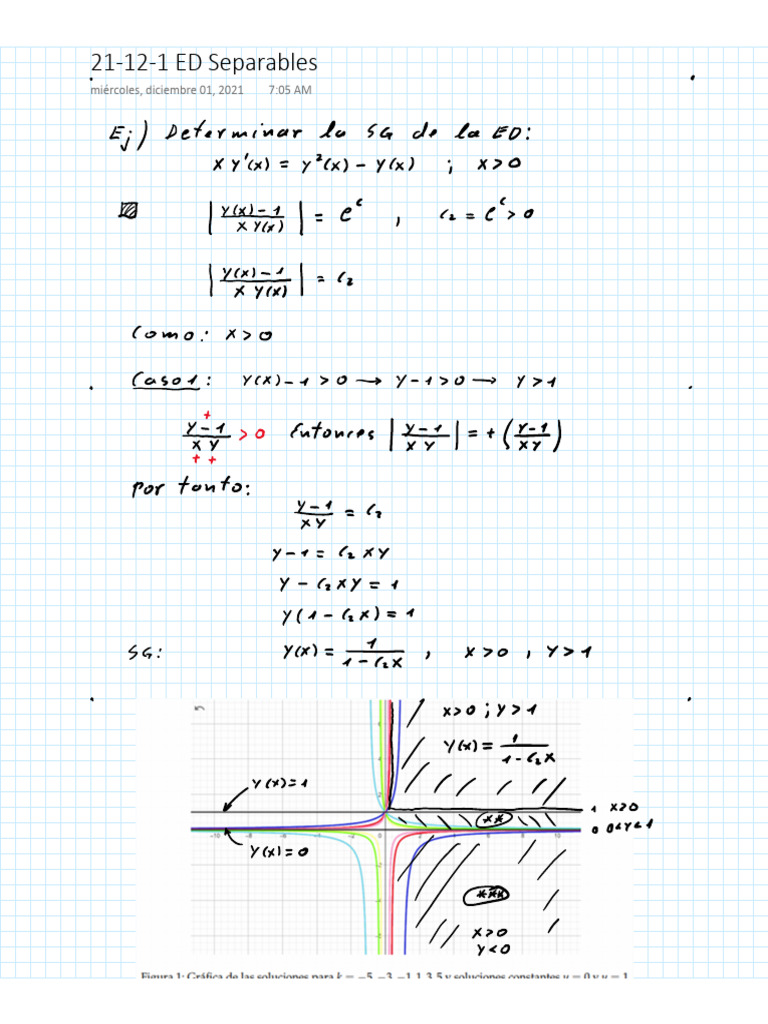 21-12-1 ED Separables
miércoles, diciembre 01, 2021 7:05 AM
Ej) Determinar la SG de la ED:
x y'(x) = y²(x) - y(x) ; x > 0
| y(x) - 1 / x y(x) | = e^c , c₂ = e^c > 0
| y(x) - 1 / x y(x) | = c₂
Como: x > 0
Caso 1: y(x) - 1 > 0 → y - 1 > 0 → y > 1
+
y - 1 / x y > 0 Entonces | y - 1 / x y | = + ( y - 1 / x y )
+ +
por tanto:
y - 1 / x y = c₂
y - 1 = c₂ x y
y - c₂ x y = 1
y (1 - c₂ x) = 1
SG: y(x) = 1 / 1 - c₂ x , x > 0 , y > 1
x > 0 ; y > 1
y(x) = 1 / 1 - c₂ x
y(x) = 1
1 x > 0
** 0 0 < y < 1
y(x) = 0
-10 -8 -6 -4 -2 0 10
***
x > 0
y < 0
Figura 1: Gráfica de las soluciones para k = -5, -3, -1, 1, 3, 5 y soluciones constantes y = 0 y y = 1